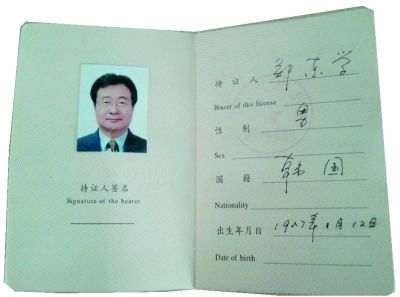 持证人签名
Signature of the bearer
持证人 郑东学
Bearer of this license
性别 男
Sex
国籍 韩国
Nationality
出生年月日 1957年1月12日
Date of birth